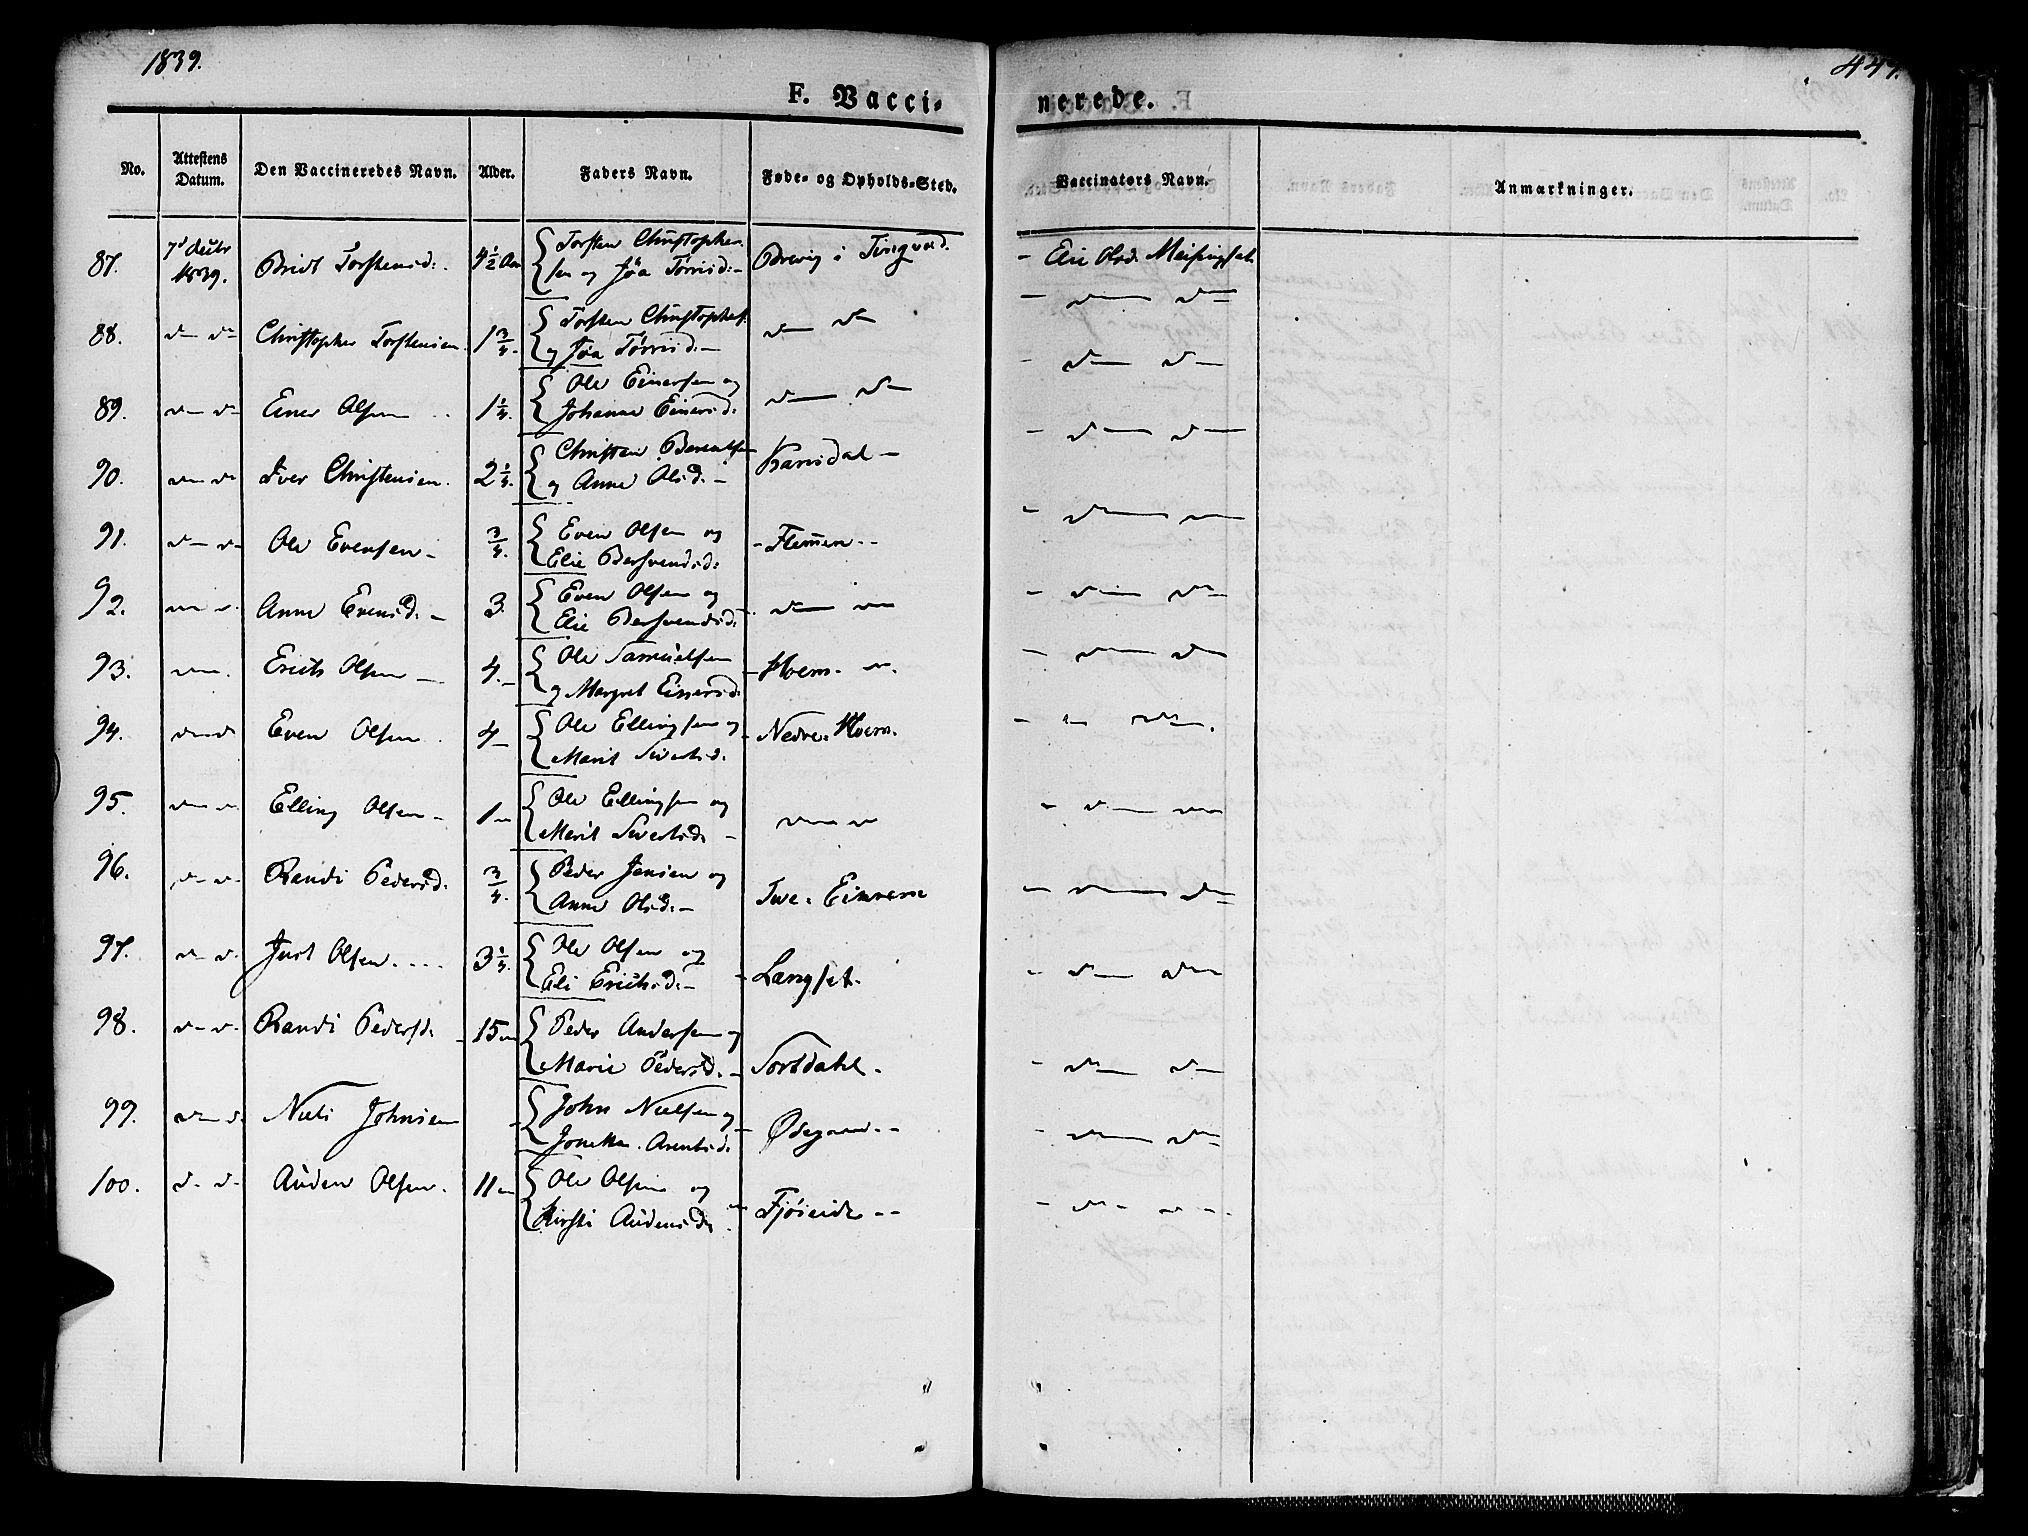 1839. 447.
F. Vacci- nerede.
No. Attestens Datum. Den Vaccineredes Navn. Alder. Faders Navn. Føde- og Opholds-Sted. Vaccinators Navn. Anmærkninger.
87. 7d Decbr 1839. Bridt Torstensd: 4 1/2 Aar Torsten Christopher- - Elie Olsd. Meisingset
sen og Jøa Tørrisd: - Brevig i Tingvold.
88. d- d- Christopher Torstensen 1 3/4. Torsten Christophers. d- d- - d- d-
og Jøa Tørrisd: -
89. d- d- Einer Olsen 1 1/4. Ole Einersen og d- d- - d- d-
Johanne Einersd:
90. d- d- Iver Christensen. 2 1/4. Christen Berentsen Hansdal - - d- d-
og Anne Olsd: -
91. d- d- Ole Evensen - 3/4. Even Olsen og - Flemmen - - - d- d-
Elie Bersvendsd:
92. d- d- Anne Evensd: - 3. Even Olsen og d- d- - d- d-
Elie Bersvendsd:
93. Erich Olsen - 4. - Ole Samuelsen - Hoem. - d- d-
og Margret Einersd:
94. d- d- Even Olsen 4 - Ole Ellingsen og - Nedre-Hoem. - d- d-
Marit Sivertsd:
95. d- d- Elling Olsen - 1 - Ole Ellingsen og d- d- - d- d-
Marit Sivertsd: -
96. d- d- Randi Pedersd: 3/4. Peder Jensen og - d- d-
Anne Olsd: -
97. d- d- Just Olsen. 3 1/4. Ole Olsen og - Langset. - d- d-
Eli Erichsd: -
98. d- d- Randi Pedersd: 15 - Peder Andersen og - d- d-
Marie Pedersd. - Sortdahl.
99. d- d- Niels Johnsen - John Nielsen og - Ødegaard - - - d- d-
Jonetta Arentsd:
100. d- d- Auden Olsen. 11 - Ole Olsen og - Fjøseide - - - d- d-
Kirsti Audensd: